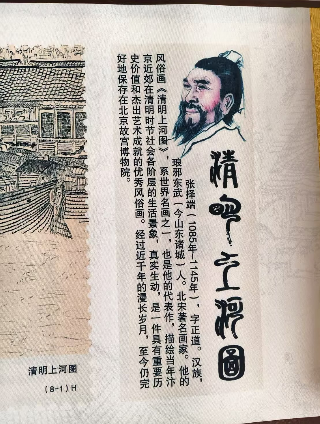 清明上河圖
张择端（1085年—1145年），字正道。汉族，
琅邪东武（今山东诸城）人。北宋著名画家。他的
风俗画《清明上河图》，系世界名画之一，也是他的代表作，描绘当年汴
京近郊在清明时节社会各阶层的生活景象，真实生动，是一件具有重要历
史价值和杰出艺术成就的优秀风俗画。经过近千年的漫长岁月，至今仍完
好地保存在北京故宫博物院。
清明上河图
（8-1）H